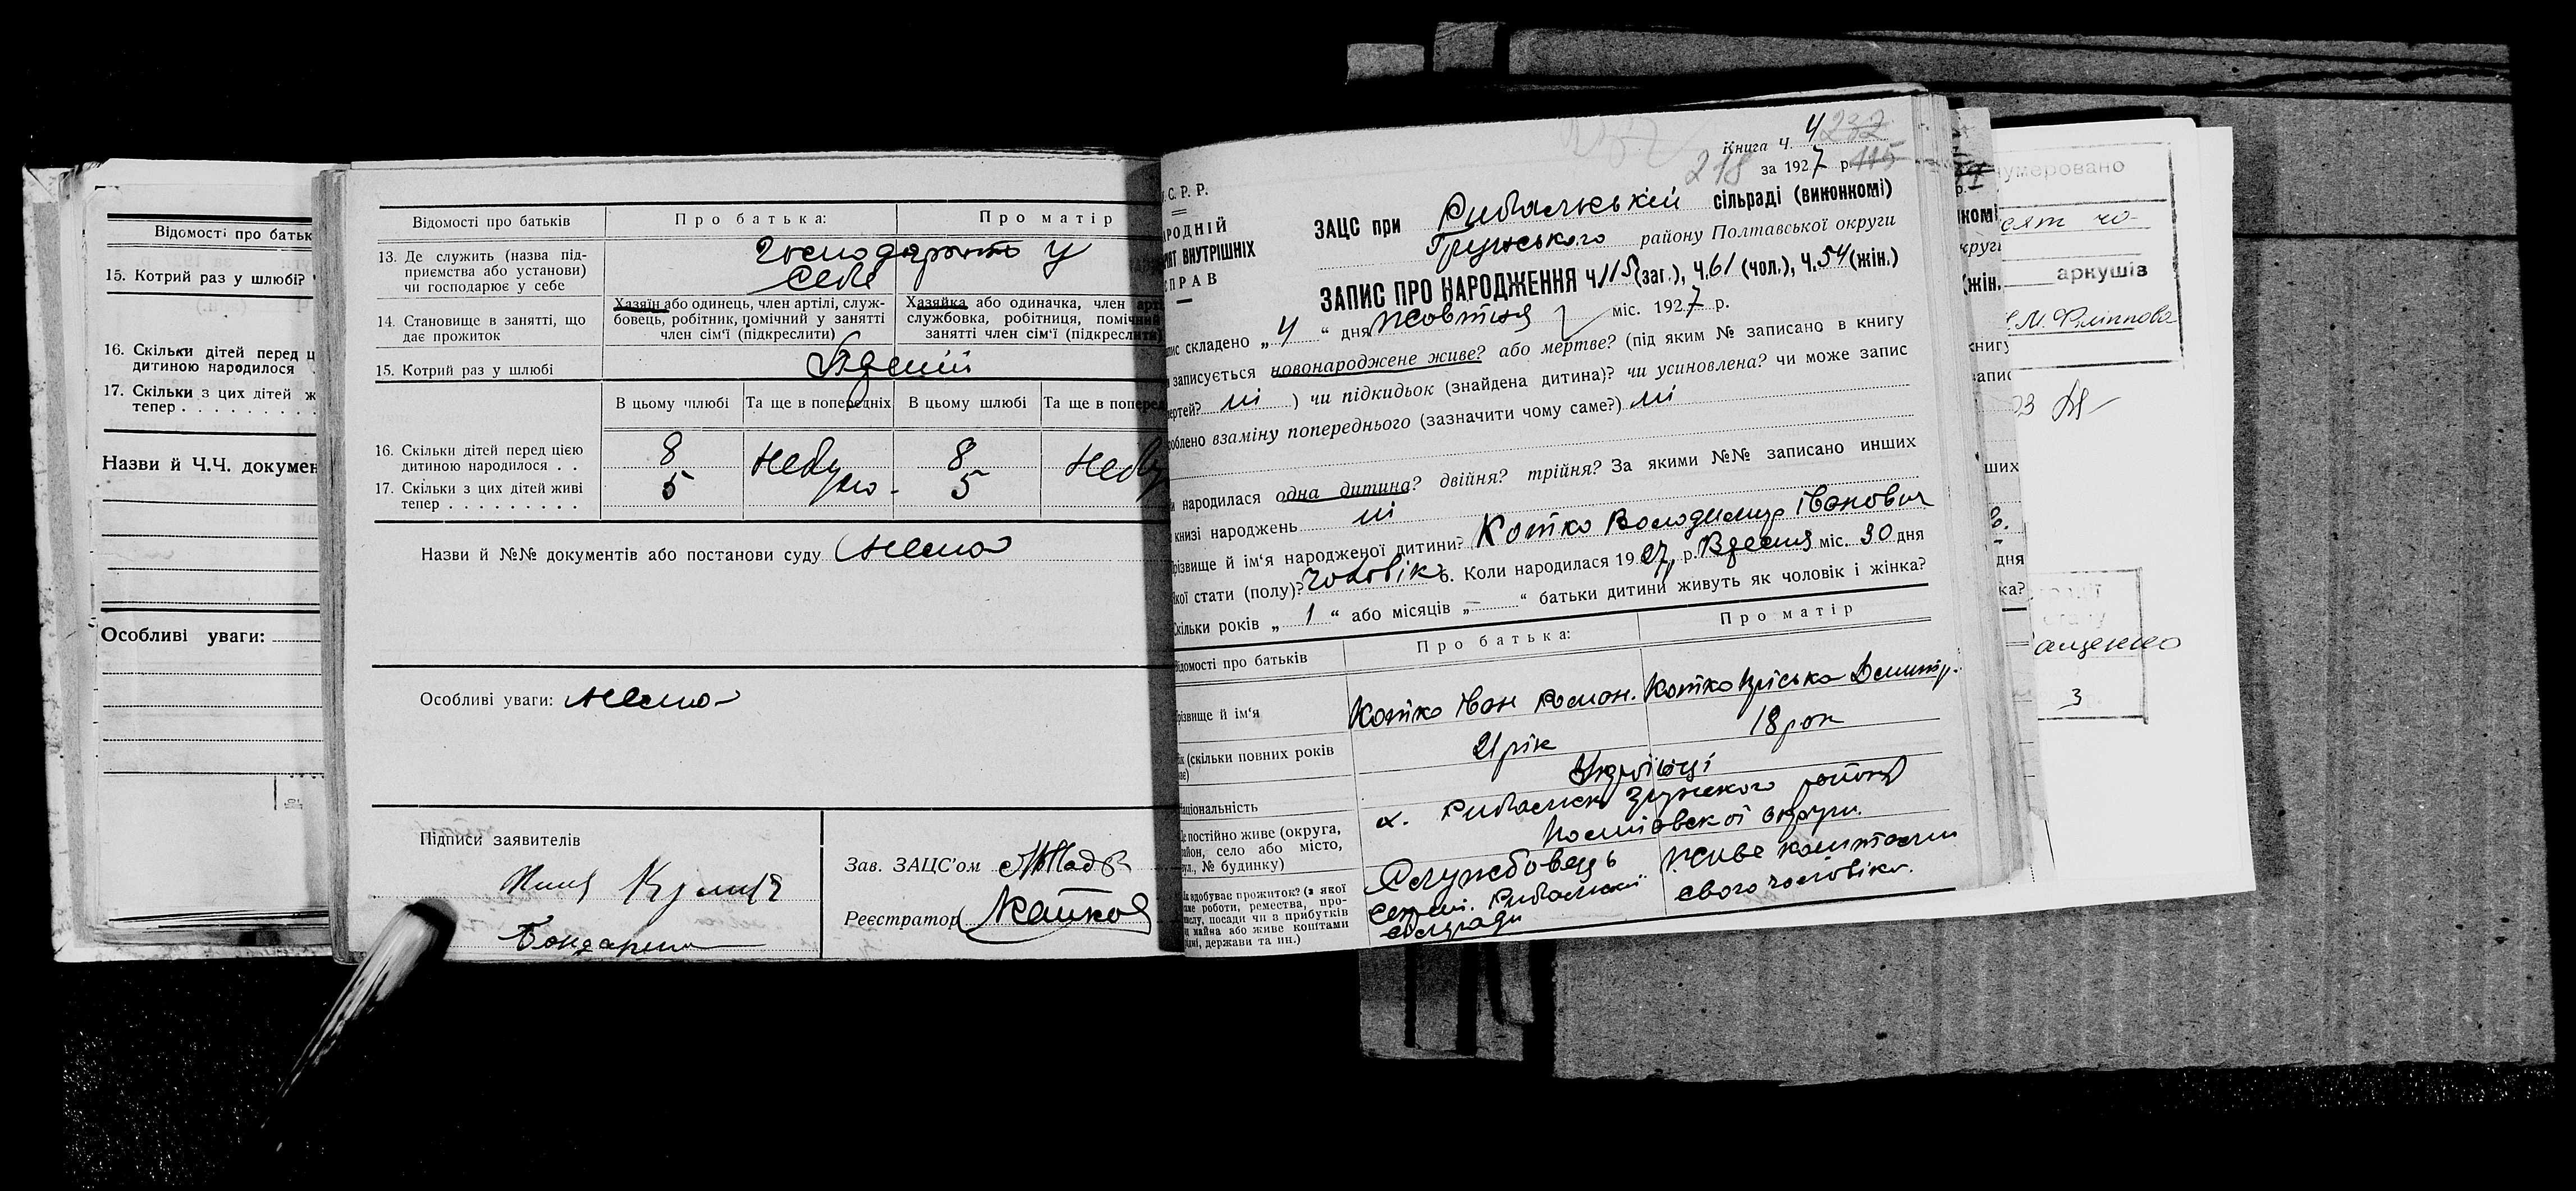 Відомості про батьк
15. Котрий раз у шлюбі?
16. Скільки дітей перед ц
дитиною народилося
17. Скільки з цих дітей ж
тепер
Назви й Ч.Ч. докумен
Особливі уваги:
Відомості про батьків
Про батька:
Про матір
13. Де служить (назва під-
приємства або установи)
чи господарює у себе
у
себе
14. Становище в занятті, що
дає прожиток
Хазяїн або одинець, член артілі, служ-
бовець, робітник, помічний у занятті
член сім'ї (підкреслити)
Хазяйка або одиначка, член арті
службовка, робітниця, помічн
занятті член сім'ї (підкреслити)
15. Котрий раз у шлюбі
В цьому шлюбі
Та ще в попередніх
В цьому шлюбі
Та ще в поперед
16. Скільки дітей перед цією
дитиною народилося . .
8
небуло
8
небу
17. Скільки з цих дітей живі
тепер . . . . . . . . .
5
5
Назви й №№ документів або постанови суду нема
Особливі уваги: нема
Підписи заявителів
Зав. ЗАЦС'ом
Реєстратор
Книга Ч. 4 232
218 за 1927 р. 115
С. Р. Р.
РОДНІЙ
ІЯТ ВНУТРІШНІХ
ПРАВ
ЗАЦС при Рибальській сільраді (виконкомі)
Грунського району Полтавської округи
ЗАПИС ПРО НАРОДЖЕННЯ Ч. 115 (заг.), Ч. 61 (чол.), Ч. 54 (жін.)
пис складено „4“ дня Жовтня міс. 1927 р.
записується новонароджене живе? або мертве? (під яким № записано в книгу
мертей? ні ) чи підкидьок (знайдена дитина)? чи усиновлена? чи може запис
роблено взаміну попереднього (зазначити чому саме?) ні
и народилася одна дитина? двійня? трійня? За якими №№ записано инших
книзі народжень ні
різвище й ім'я народженої дитини? Котко Володимир Іванович
кої стати (полу)? чоловік 6. Коли народилася 1927 р. Вресня міс. 30 дня
кільки років „1“ або місяців „-“ батьки дитини живуть як чоловік і жінка?
ідомості про батьків
Про батька:
Про матір
різвище й ім'я
Котко Іван Роман.
Котко Пріська Демитр.
ік (скільки повних років
має)
21 рік
18 рок
аціональність
Українці
е постійно живе (округа,
район, село або місто,
вул., № будинку)
х. Рибальськ Грунского району
Полтавскої округи.
к здобуває прожиток? (з якої
саме роботи, ремества, про-
мислу, посади чи з прибутків
майна або живе коштами
рідні, держави та ин.)
Службовець
Рибальскої
сільради
Живе коштами
свого чоловіка.
умеровано
аркушів
3